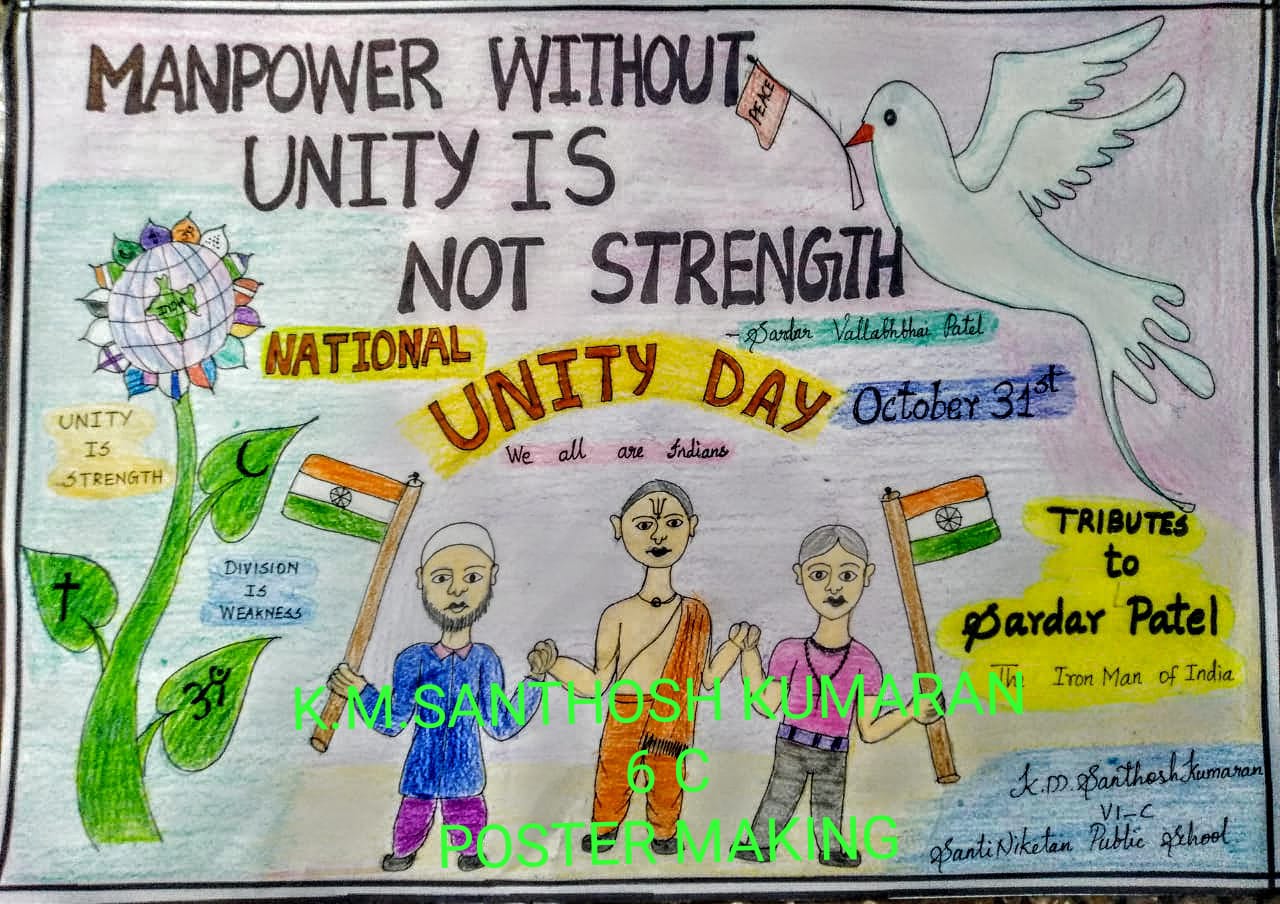 MANPOWER WITHOUT
PEACE
UNITY IS
NOT STRENGTH
- Sardar Vallabhbhai Patel
INDIA
NATIONAL
UNITY DAY
October 31st
We all are Indians
UNITY
IS
STRENGTH
DIVISION
IS
WEAKNESS
ॐ
TRIBUTES
to
Sardar Patel
The Iron Man of India
K.M.SANTHOSH KUMARAN
6 C
POSTER MAKING
K.M.SanthoshKumaran
VI-C
SantiNiketan Public School